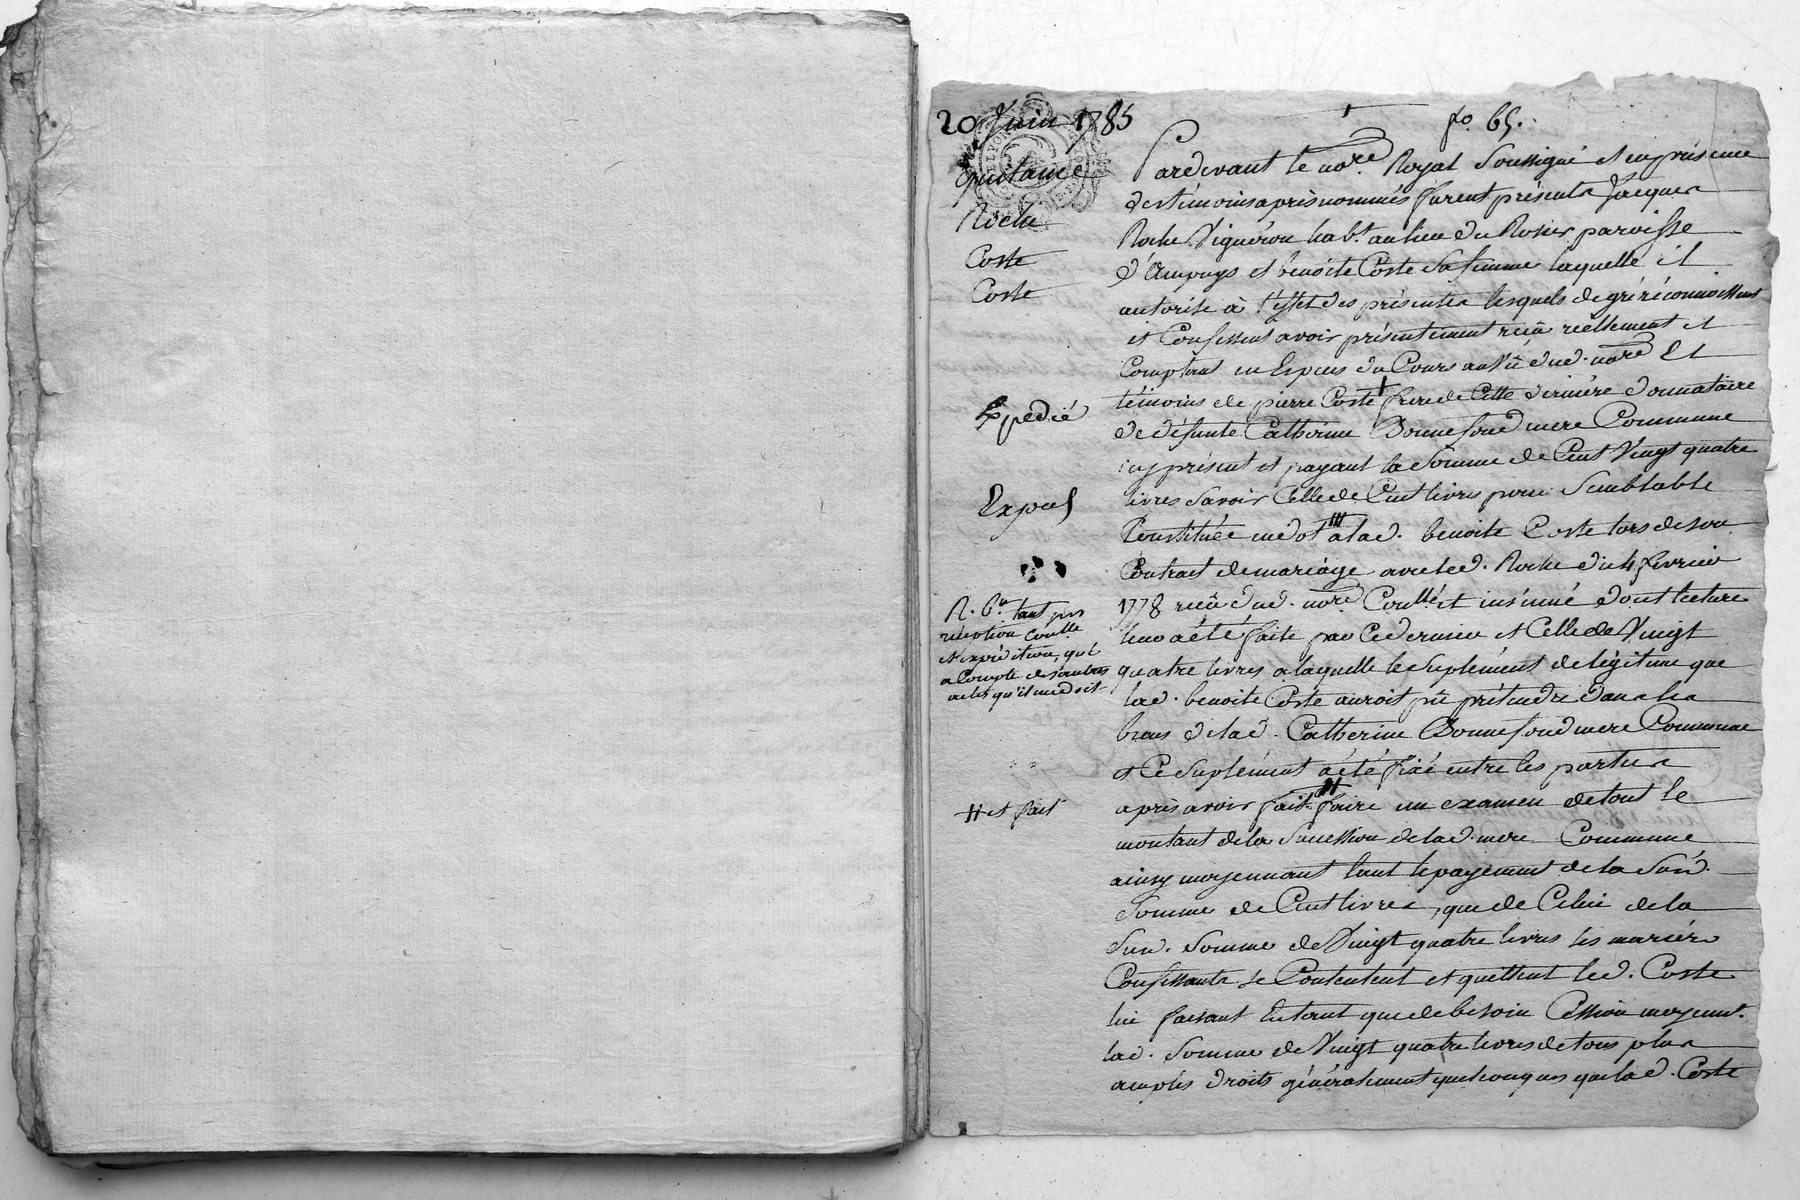 20 Juin 1785
fo. 65.
quitance
Roche
Coste
Coste
Expedié
R. 6# tant pour
réception Coulle
et expédition, qu'à
a Compte des autres
actes qu'il me doit
# et fait
Pardevant le nore. Royal Soussigné et en présence
des témoins après nommés furent présents Jacques
Roche Vigneron habt. au lieu du Rosier paroisse
d'Ampuys et benoite Coste sa femme laquelle il
autorise à l'effet des présentes lesquels de gré réconnoissent
et Confessent avoir présentement reçû réellement et
Comptant en Espèces du Cours au Vû dud. nore Et
témoins de pierre Coste frere de Cette derniére donnataire
de défunte Catherine Bonnefond mere Commune
icy présent et payant la Somme de Cent Vingt quatre
livres Savoir Celle de Cent livres pour Semblable
Constituée en dot a lad. benoite Coste lors de son
Contrat de mariage avec led. Roche du 4 fevrier
1778 reçû dud. nore Coullé et insinué dont lecture
leur a été faite par Ce dernier et Celle de Vingt
quatre livres a laquelle le Suplément de légitime que
lad. benoite Coste auroit pû prétendre dans les
biens de lad. Catherine Bonnefond mere Commune
et Ce Suplément a été fixé entre les parties
après avoir fait faire un examen de tout le
montant de la Succession de lad. mere Commune
ainsy moyennant tant le payement de la Sud.
Somme de Cent livres, que de Celui de la
Sud. Somme de Vingt quatre livres les mariés
Confessants se Contentent et quittent led. Coste
lui faisant En tant que de besoin Cession moyennt.
lad. Somme de Vingt quatre livres de tous plus
amples droits généralement quelconques que lad. Coste